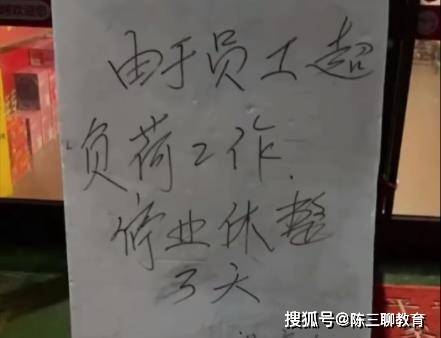 由于员工超
负荷工作.
停业休整
3天
搜狐号@陈三聊教育